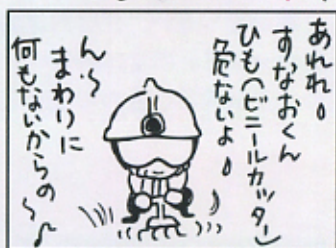 あれれ
すなおくん
ひも(ビニールカッター)
危ないよ
ん〜
まわりに
何もないからの
〜♪